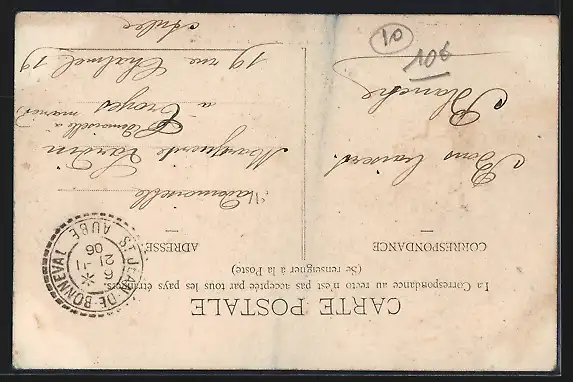 CARTE POSTALE
La Correspondance au recto n'est pas acceptée par tous les pays étrangers.
(Se renseigner à la Poste)
CORRESPONDANCE
ADRESSE
Bons baisers.
Blanche
Mademoiselle
Marguerite
(Demoiselle à marier)
à Troyes
19 rue Chalmel 19
Aube
ST JEAN-DE-BONNEVAL
AUBE
6
21 -11
06
10
10€